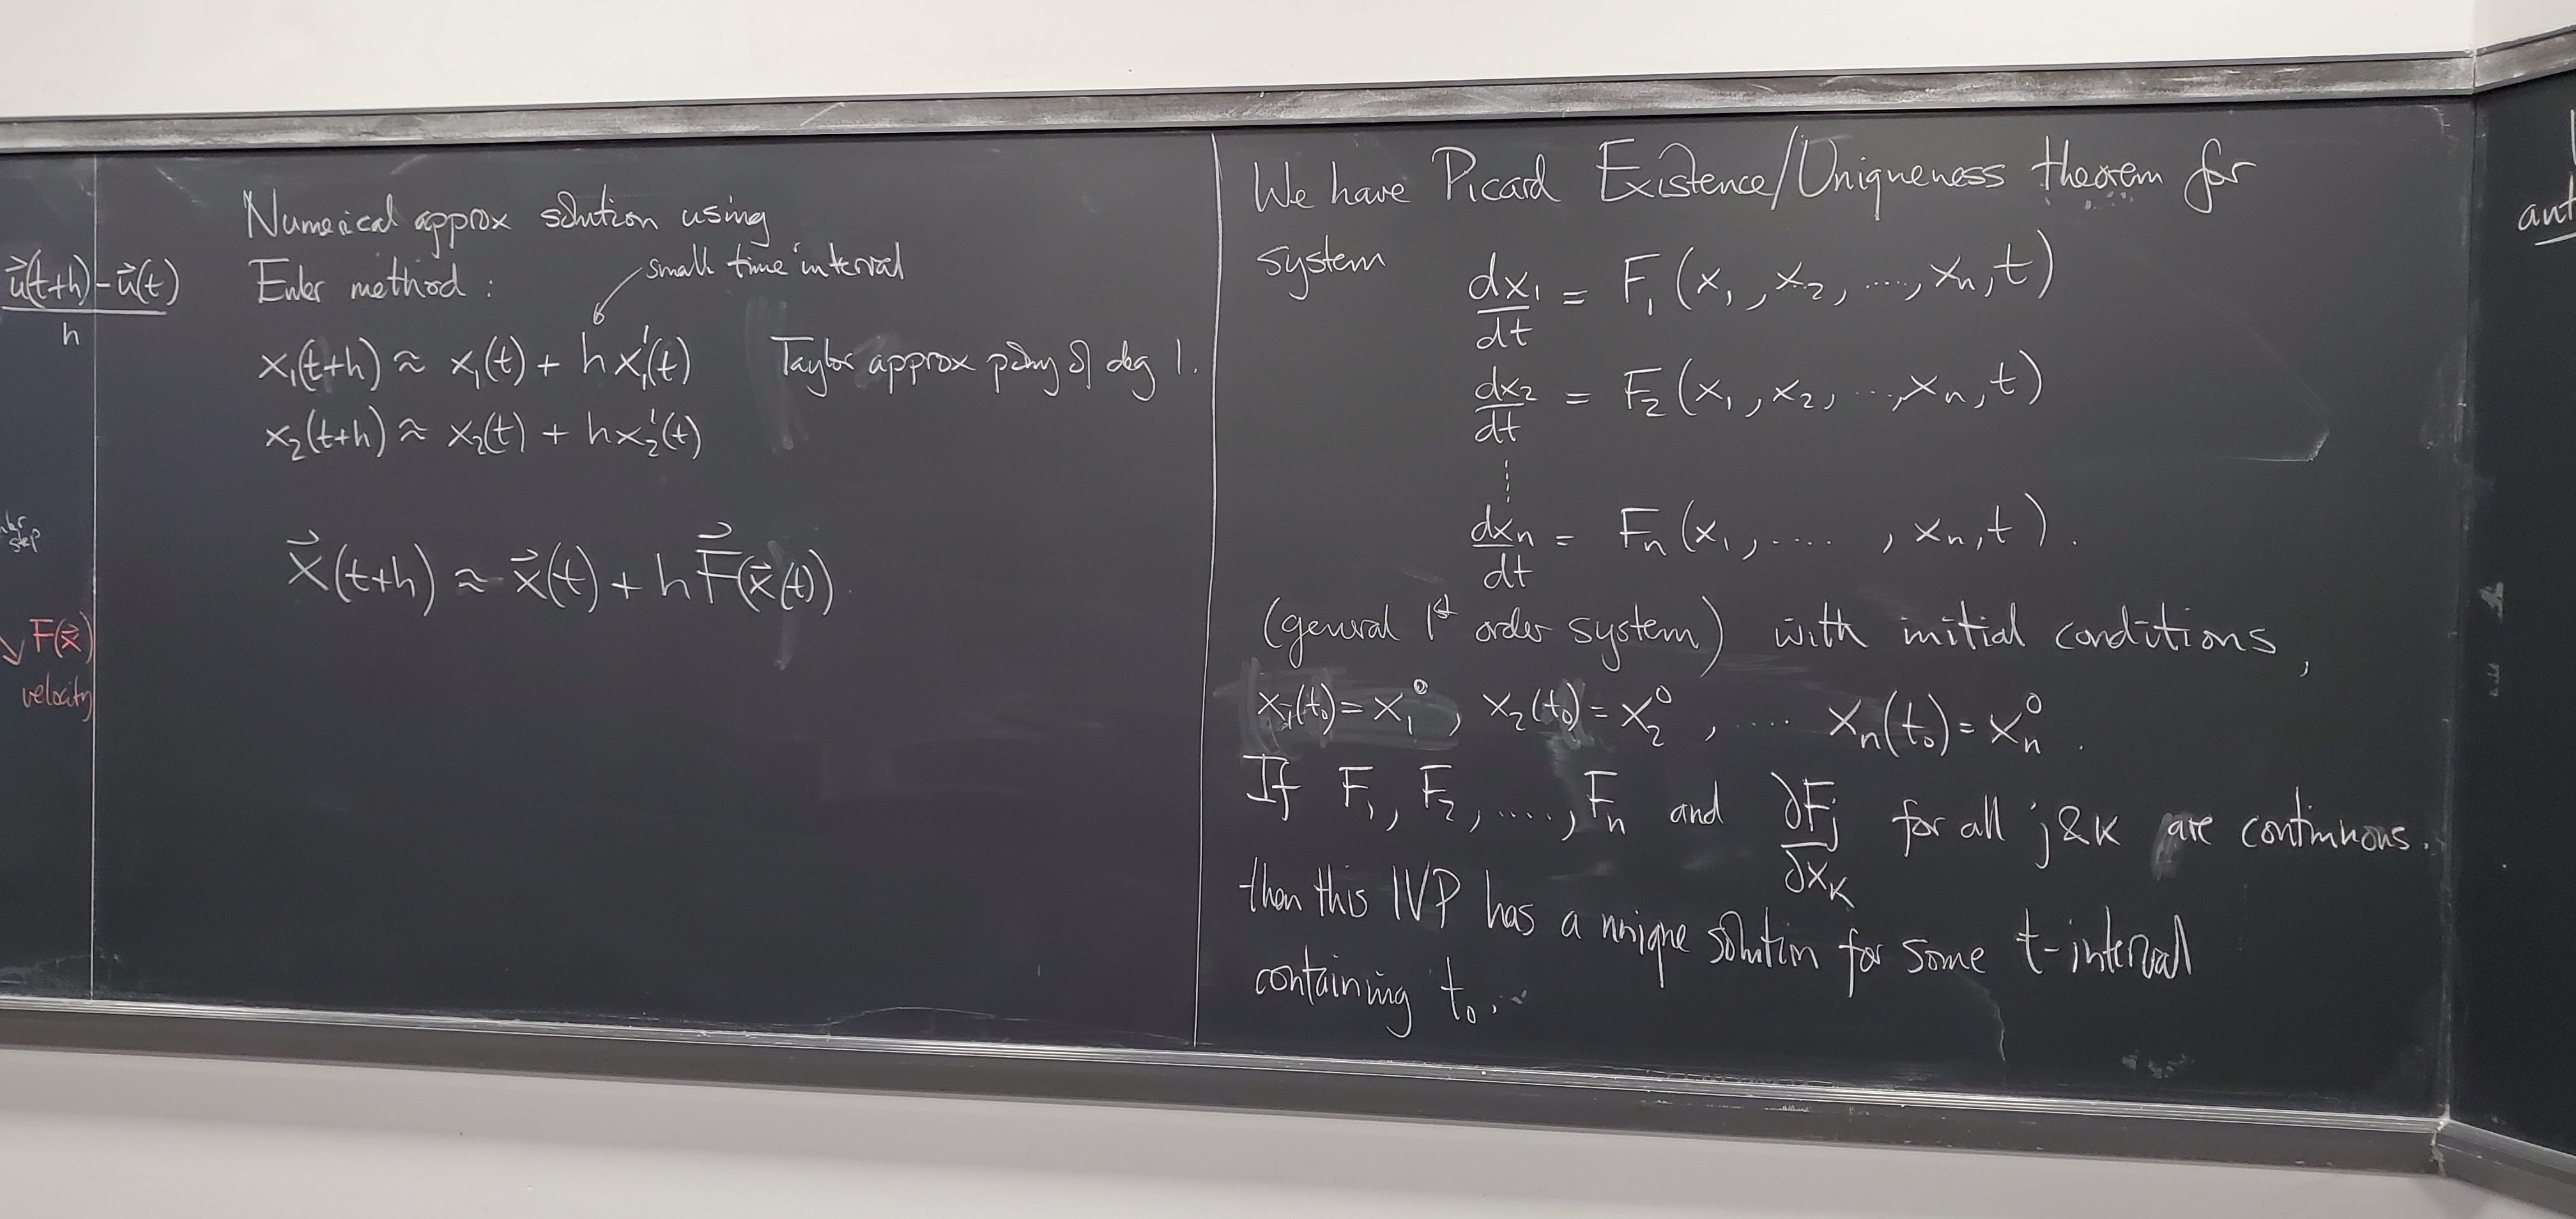 u⃗(t+h)-u⃗(t)
h
step
F(x⃗)
velocity
Numerical approx solution using
Euler method :
small time interval
x₁(t+h) ≈ x₁(t) + h x₁'(t)
Taylor approx poly of deg 1.
x₂(t+h) ≈ x₂(t) + h x₂'(t)
x⃗(t+h) ≈ x⃗(t) + h F⃗(x⃗(t)).
We have Picard Existence/Uniqueness theorem for
system
dx₁/dt = F₁(x₁, x₂, ...., xₙ, t)
dx₂/dt = F₂(x₁, x₂, ...., xₙ, t)
⋮
dxₙ/dt = Fₙ(x₁, ...., xₙ, t).
(general 1st order system) with initial conditions,
x₁(t₀) = x₁⁰, x₂(t₀) = x₂⁰, .... xₙ(t₀) = xₙ⁰.
If F₁, F₂, ...., Fₙ and ∂Fⱼ/∂xₖ for all j & k are continuous.
then this IVP has a unique solution for some t-interval
containing t₀.
ant